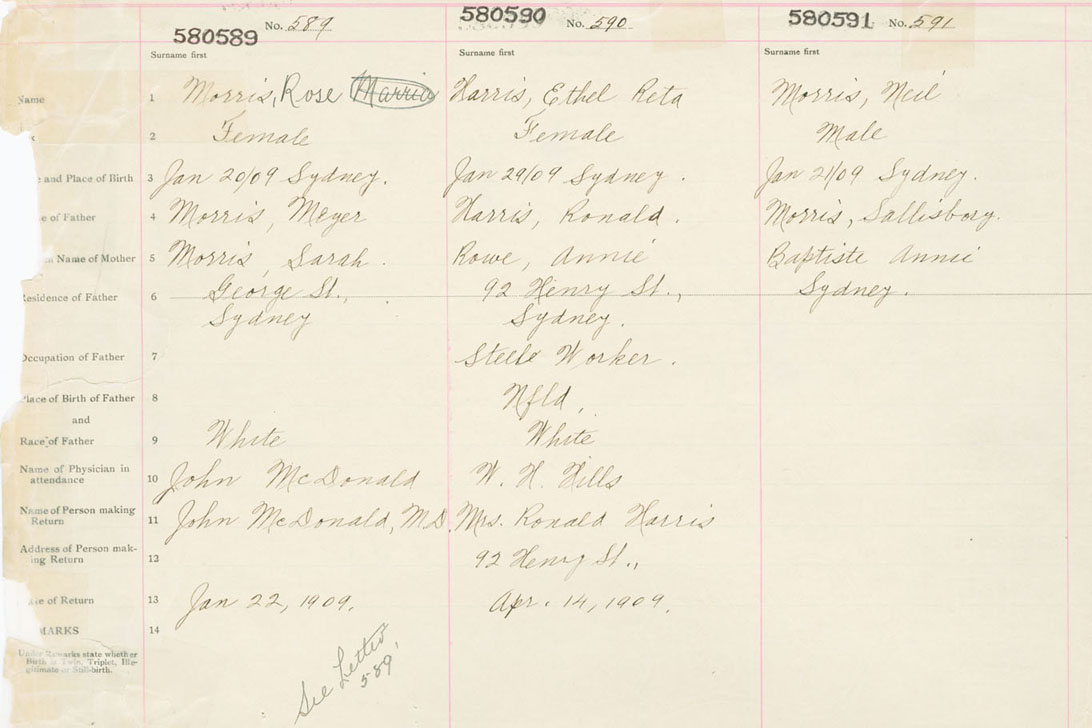 580589 No. 589 580590 No. 590 580591 No. 591
Surname first Surname first Surname first
Name 1 Morris, Rose Harris, Ethel Reta Morris, Neil
2 Female Female Male
e and Place of Birth 3 Jan 20/09 Sydney. Jan 29/09 Sydney. Jan 21/09 Sydney.
e of Father 4 Morris, Meyer Harris, Ronald. Morris, Sallisbory.
Name of Mother 5 Morris, Sarah. Rowe, Annie Baptiste Annie
Residence of Father 6 George St., 92 Henry St., Sydney.
Sydney Sydney.
Occupation of Father 7 Steele Worker.
Place of Birth of Father 8 Nfld,
and
Race of Father 9 White White
Name of Physician in
attendance 10 John McDonald W. H. Hills
Name of Person making
Return 11 John McDonald, M.D. Mrs. Ronald Harris
Address of Person mak-
ing Return 12 92 Henry St.,
te of Return 13 Jan 22, 1909. Apr. 14, 1909.
MARKS 14
Under Remarks state whether
Birth is Twin, Triplet, Ille-
gitimate or Still-birth.
See Letter
589